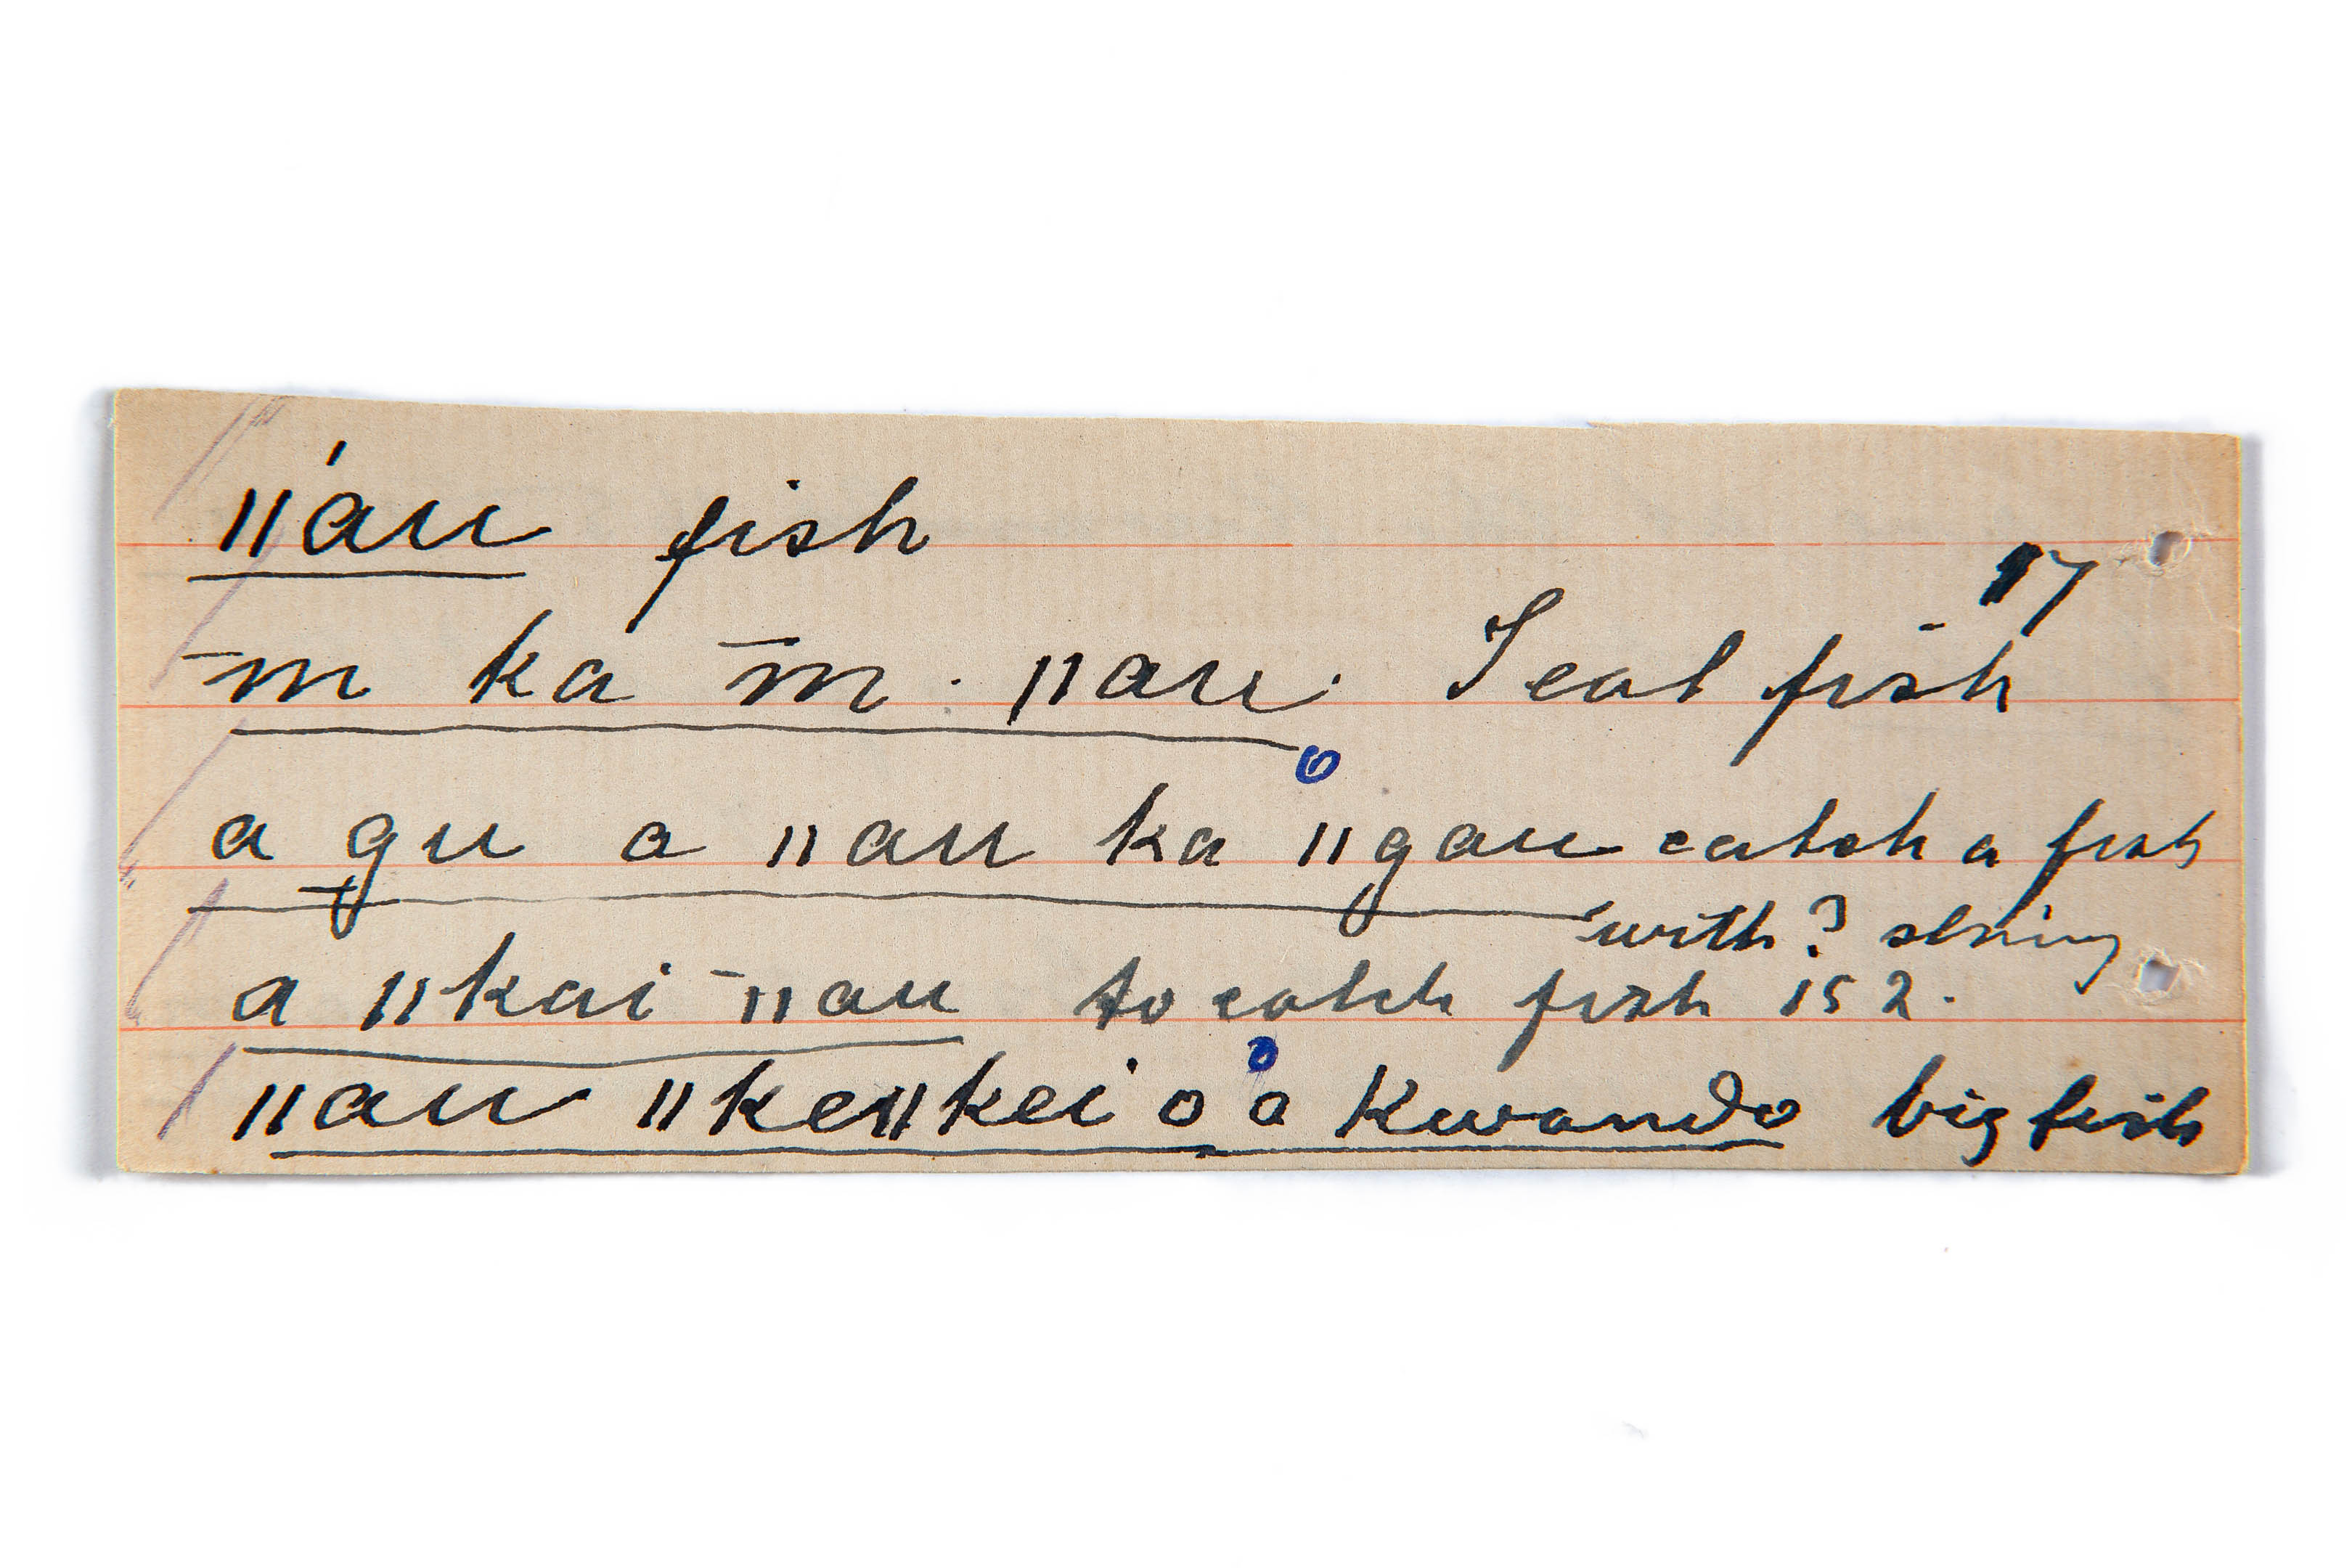 ǁáu fish
17
m̄ ka m̄ · ǁau · I eat fish
a gu a ǁau ka ǁgau catch a fish
with? string
a ǁkai ˉǁau to catch fish 152.
ǁau ǁkeǁkei o o Kwando big fish